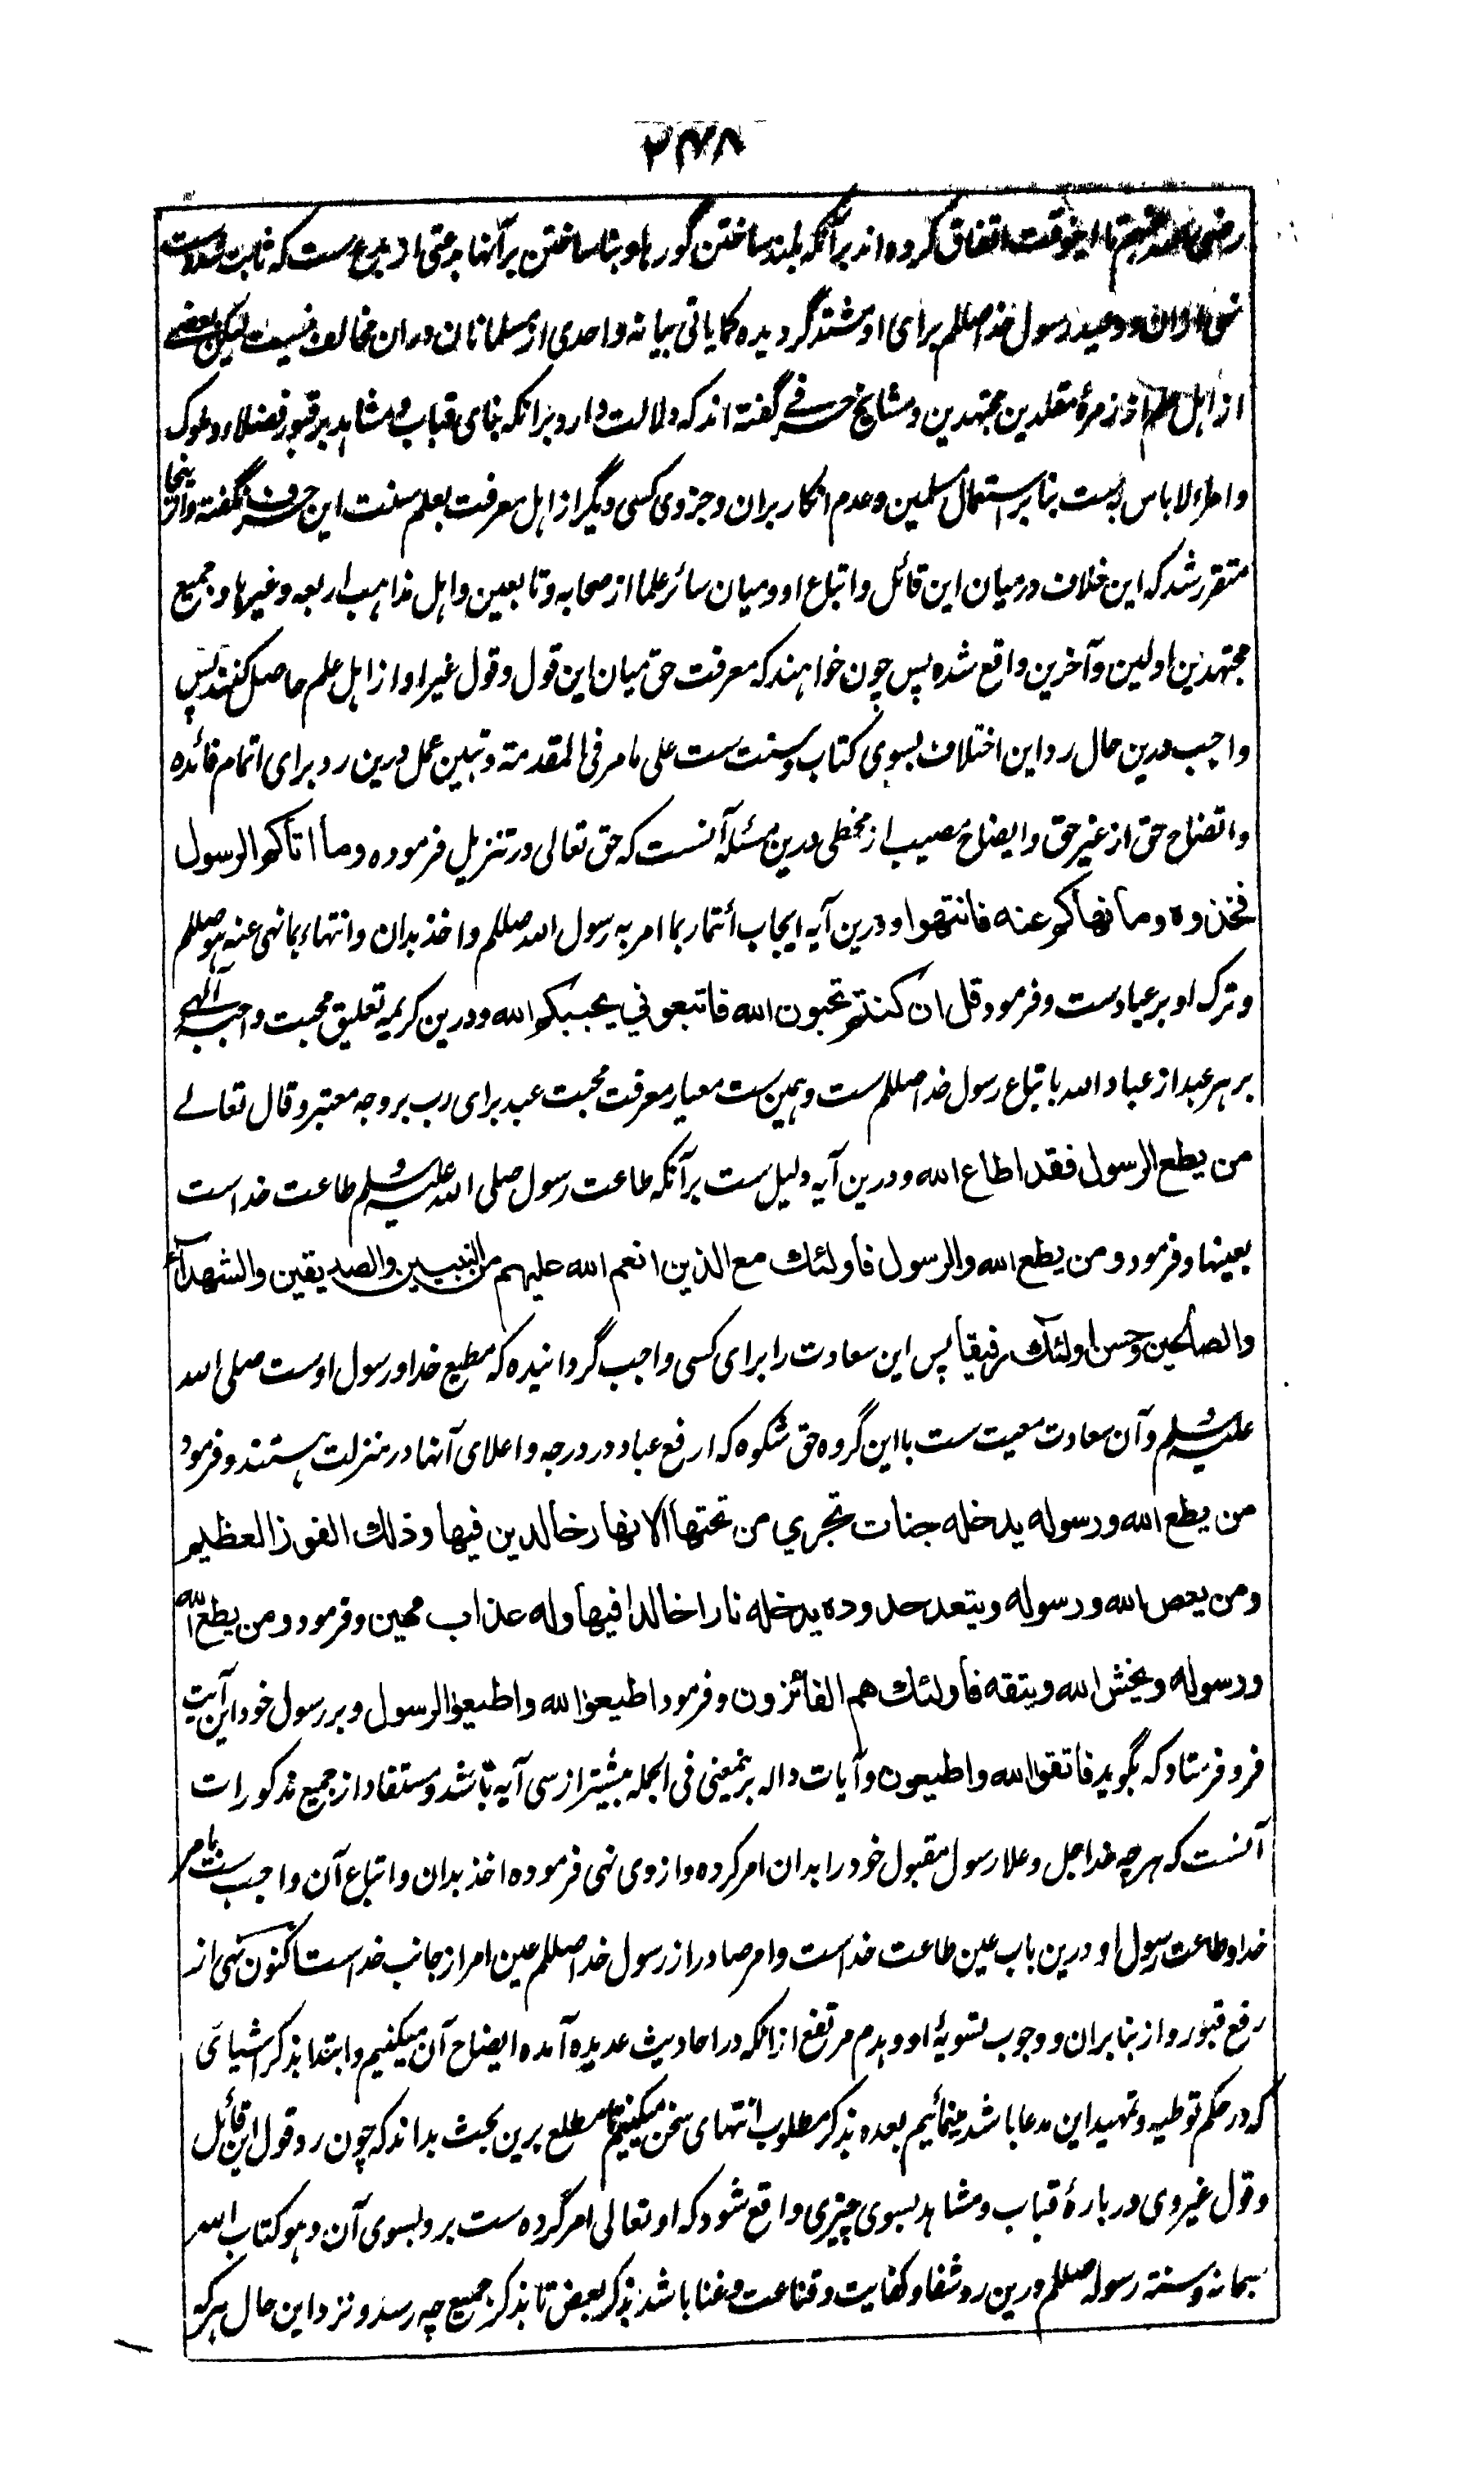 ۲۴۸
رضی الله عنهم تا اینوقت اتفاق کرده‌اند برآنکه بلند ساختن گورها و بنا ساختن برآنها بدعتی از بدع ست که ثابت شده است
نهی ازان و وعید رسول خدا صللم برای او مشتد گردیده کما یاتی بیانه واحدی از مسلمانان دران مخالف نیست لیکن بعضے
از اهل علم از زمرهٔ مقلدین مجتهدین و مشایخ حرفے گفته‌اند که دلالت دارد برانکه بنای قباب و مشاهد بر قبور فضلا و ملوک
و امراء لا باس به ست بنابر استعمال مسلمین و عدم انکار بران و جز وی کسی دیگر از اهل معرفت بعلم سنت این حرف نگفته و از ینجا
متقرر شد که این خلاف درمیان این قائل و اتباع او و میان سائر علما از صحابه و تابعین و اهل مذاهب اربعه و غیرها و جمیع
مجتهدین اولین و آخرین واقع شده پس چون خواهند که معرفت حق میان این قول و قول غیر او از اهل علم حاصل کنند پس
واجب درین حال رد این اختلاف بسوی کتاب و سنت ست علی ما مر فی المقدمة و تبیین عمل درین رد برای اتمام فائده
و اتضاح حق از غیر حق و ایضاح مصیب از مخطی درین مسئله آنست که حق تعالی در تنزیل فرموده وما اتاکم الرسول
فخذوه وما نهاکم عنه فانتهوا و درین آیه ایجاب ائتمار بما امر به رسول الله صللم و اخذ بدان و انتهاء بما نهی عنه هو صللم
و ترک او بر عباد ست و فرمود قل ان کنتم تحبون الله فاتبعوني یحببکم الله و درین کریمه تعلیق محبت واجبه الهی
بر هر عبد از عباد الله باتباع رسول خدا صللم ست و همین ست معیار معرفت محبت عبد برای رب بر وجه معتبر و قال تعالے
من یطع الرسول فقد اطاع الله و درین آیه دلیل ست برآنکه طاعت رسول صلی الله علیه وسلم طاعت خداست
بعینها و فرمود ومن یطع الله والرسول فاولئك مع الذین انعم الله علیهم من النبیین والصدیقین والشهداء
والصالحین وحسن اولئك رفیقا پس این سعادت را برای کسی واجب گردانیده که مطیع خدا و رسول اوست صلی الله
علیه وسلم و آن سعادت معیت ست با این گروه حق شکوه که ارفع عباد در درجه و اعلای آنها در منزلت هستند و فرمود
من یطع الله ورسوله یدخله جنات تجري من تحتها الانهار خالدین فیها وذلك الفوز العظیم
ومن یعص الله ورسوله ویتعد حدوده یدخله نارا خالدا فیها وله عذاب مهین و فرمود ومن یطع الله
ورسوله ویخش الله ویتقه فاولئك هم الفائزون و فرمود اطیعوا الله واطیعوا الرسول و بر رسول خود این آیت
فرو فرستاد که بگوید فاتقوا الله واطیعون و آیات داله برینمعنی فی الجمله بیشتر از سی آیه باشد و مستفاد از جمیع مذکورات
آنست که هرچه خدا جل و علا رسول مقبول خود را بدان امر کرده و از وی نهی فرموده اخذ بدان و اتباع آن واجب ست بامر
خدا و طاعت رسول او درین باب عین طاعت خداست و امر صادر از رسول خدا صللم عین امر از جانب خداست اکنون نهی از
رفع قبور و از بنا بران و وجوب تسویهٔ او و هدم مرتفع ازانکه در احادیث عدیده آمده ایضاح آن میکنیم و ابتدا بذکر اشیای
که در حکم توطیه و تمهید این مدعا باشد مینمائیم بعده بذکر مطلوب انتهای سخن میکنیم تا مطلع برین بحث بداند که چون رد قول این قائل
و قول غیر وی دربارهٔ قباب و مشاهد بسوی چیزی واقع شود که او تعالی امر کرده ست برد بسوی آن و هو کتاب الله
سبحانه و سنة رسوله صللم درین رد شفا و کفایت و قناعت و غنا باشد بذکر بعض تا بذکر جمیع چه رسد و نزد این حال هرکه